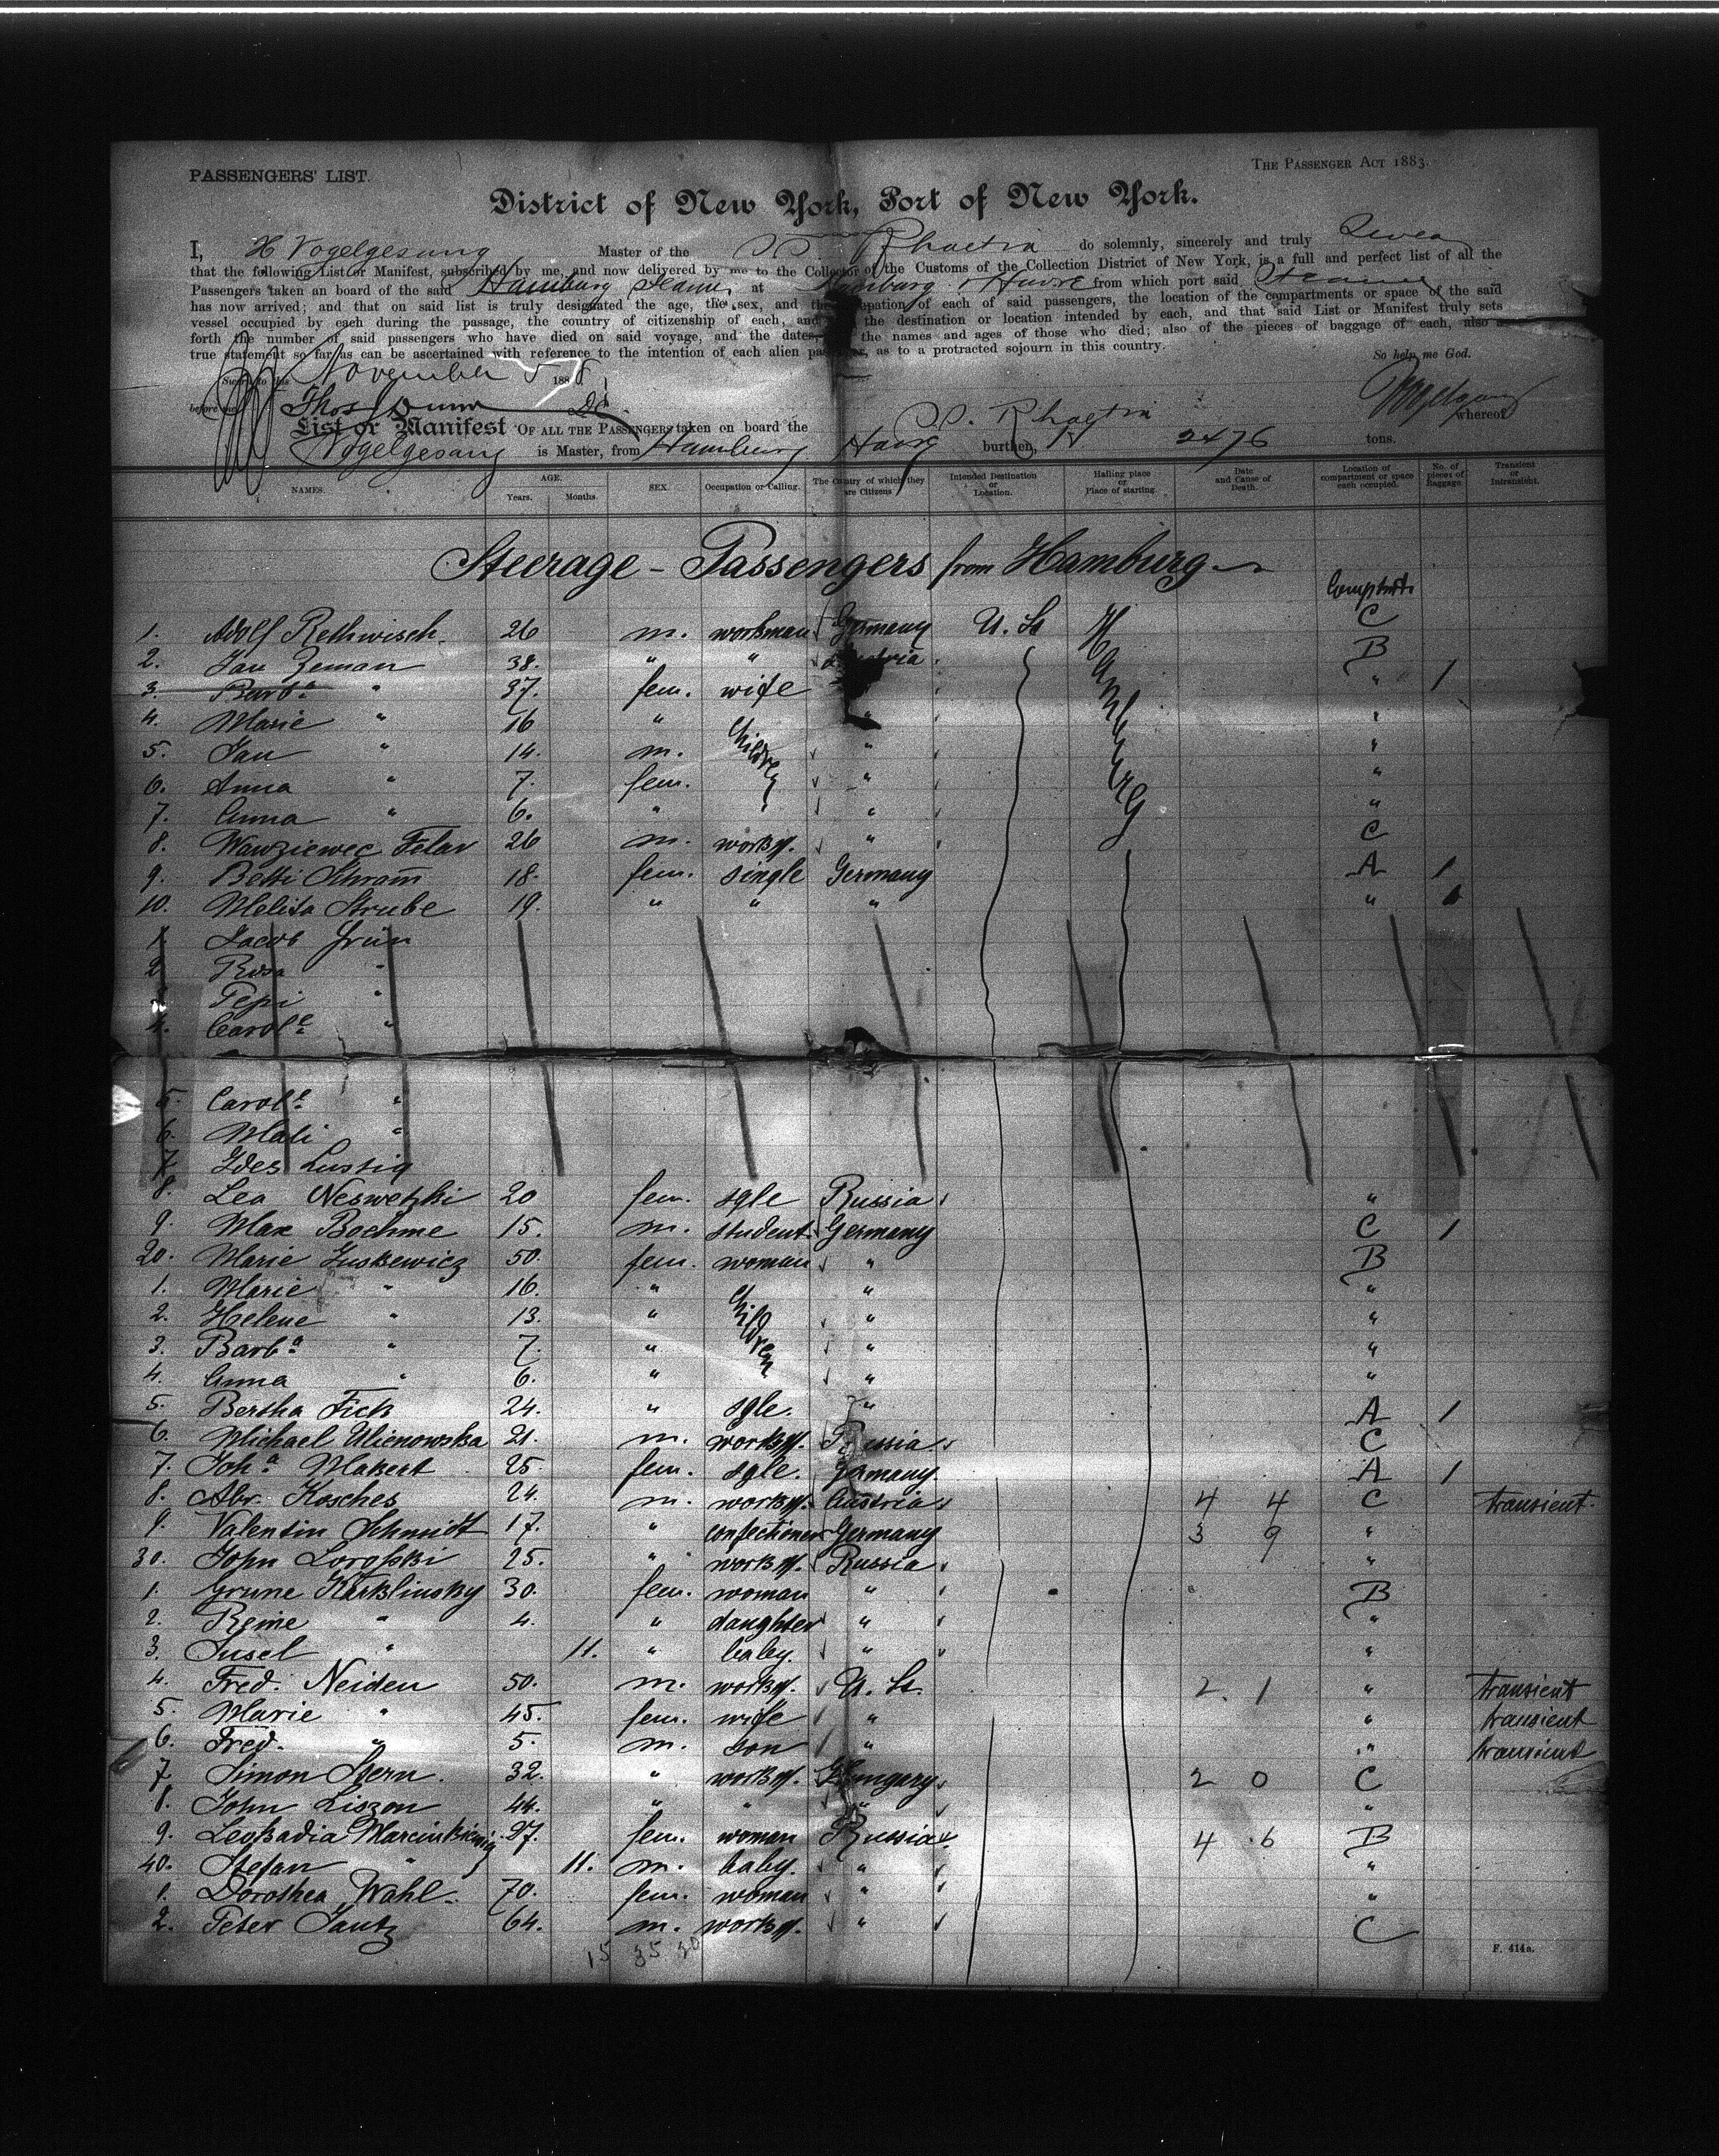 PASSENGERS' LIST.
THE PASSENGER ACT 1883.
District of New York, Port of New York.
I, H Vogelgesang Master of the S.S. Rhaetia do solemnly, sincerely and truly
that the following List or Manifest, subscribed by me, and now delivered by me to the Collector of the Customs of the Collection District of New York, is a full and perfect list of all the
Passengers taken on board of the said Hamburg at Hamburg & Havre from which port said Steamer
has now arrived; and that on said list is truly designated the age, the sex, and the occupation of each of said passengers, the location of the compartments or space of the said
vessel occupied by each during the passage, the country of citizenship of each, and the destination or location intended by each, and that said List or Manifest truly sets
forth the number of said passengers who have died on said voyage, and the dates, the names and ages of those who died; also of the pieces of baggage of each, also a
true statement so far as can be ascertained with reference to the intention of each alien passenger, as to a protracted sojourn in this country.
So help me God.
Sworn to this November 5 188
before me Thos
List or Manifest OF ALL THE PASSENGERS taken on board the S.S. Rhaetia whereof
Vogelgesang is Master, from Hamburg Havre burthen, 2476 tons.
NAMES. AGE. Years. Months. SEX. Occupation or Calling. The Country of which they are Citizens Intended Destination or Location. Halling place or Place of starting Date and Cause of Death. Location of compartment or space each occupied. No. of pieces of Baggage Transient or Intransient.
Steerage - Passengers from Hamburg
1. Adolf Rethwisch 26 m. workman Germany U. St. Hamburg C
2. Jan Zeman 38. " " Austria B
3. Barba " 37. fem. wife " 1
4. Marie " 16 " children " "
5. Jan " 14. m. " "
6. Anna " 7. fem. " "
7. Anna " 6. " " "
8. Wawziewec Felar 26 m. workm. " C
9. Betti Schram 18. fem. single Germany A 1
10. Melita Strube 19. " " " " 1
1. Jacob Grün
2. Rosa "
3. Pepi "
4. Carole "
5. Carole "
6. Mali "
7. Ides Lustig
8. Lea Neswetzki 20 fem. sgle Russia "
9. Max Boehme 15. m. student Germany C 1
20. Marie Juskewicz 50. fem. woman " B
1. Marie " 16. " children " "
2. Helene " 13. " " "
3. Barba " 7. " " "
4. Anna " 6. " " "
5. Bertha Fick 24. " sgle. " A 1
6. Michael Ulienowska 21. m. workm. Russia C
7. Joha Makert 25. fem. sgle. Germany A 1
8. Abr. Kosches 24. m. workm. Austria 4 4 C transient.
9. Valentin Schmidt 17. " confectioner Germany 3 9 "
30. John Lorofski 25. " workm. Russia "
1. Grune Karklinsky 30. fem. woman " B
2. Reine " 4. " daughter " "
3. Susel " 11. " baby. " "
4. Fred. Neiden 50. m. workm. U. St. 2. 1 " transient
5. Marie " 45. fem. wife " " transient
6. Fred. " 5. m. son " " transient
7. Simon Stern. 32. " workm. Hungary 2 0 C
8. John Liszon 44. " " " "
9. Leokadia Marcinkiewicz 27. fem. woman Russia 4 6 B
40. Stefan " 11. m. baby. " "
1. Dorothea Wahl. 70. fem. woman " "
2. Peter Jantz 64. m. workm. " C
15 35 30
F. 414a.